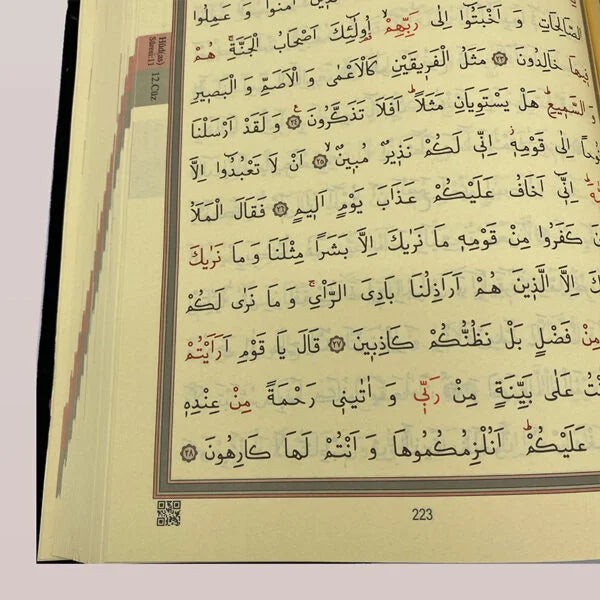 آمنوا و عملوا
الصَّالِحَاتِ وَ اَخْبَتُٓوا اِلٰى رَبِّهِمْۙ اُو۬لٰٓئِكَ اَصْحَابُ الْجَنَّةِۚ هُمْ
ف۪يهَا خَالِدُونَ ﴿٢٣﴾ مَثَلُ الْفَر۪يقَيْنِ كَالْاَعْمٰى وَ الْاَصَمِّ وَ الْبَص۪يرِ
وَ السَّم۪يعِۜ هَلْ يَسْتَوِيَانِ مَثَلًاۜ اَفَلَا تَذَكَّرُونَ۟ ﴿٢٤﴾ وَ لَقَدْ اَرْسَلْنَا
اِلٰى قَوْمِه۪ۘ اِنّ۪ي لَكُمْ نَذ۪يرٌ مُب۪ينٌۙ ﴿٢٥﴾ اَنْ لَا تَعْبُدُٓوا اِلَّا
اِنّ۪ٓي اَخَافُ عَلَيْكُمْ عَذَابَ يَوْمٍ اَل۪يمٍ ﴿٢٦﴾ فَقَالَ الْمَلَاُ
كَفَرُوا مِنْ قَوْمِه۪ مَا نَرٰيكَ اِلَّا بَشَرًا مِثْلَنَا وَ مَا نَرٰيكَ
اِلَّا الَّذ۪ينَ هُمْ اَرَاذِلُنَا بَادِيَ الرَّأْيِۚ وَ مَا نَرٰى لَكُمْ
مِنْ فَضْلٍ بَلْ نَظُنُّكُمْ كَاذِب۪ينَ ﴿٢٧﴾ قَالَ يَا قَوْمِ اَرَاَيْتُمْ
عَلٰى بَيِّنَةٍ مِنْ رَبّ۪ي وَ اٰتٰين۪ي رَحْمَةً مِنْ عِنْدِه۪
عَلَيْكُمْۜ اَنُلْزِمُكُمُوهَا وَ اَنْتُمْ لَهَا كَارِهُونَ ﴿٢٨﴾
223
Hûd(as)
Sûresi:11
12.Cüz